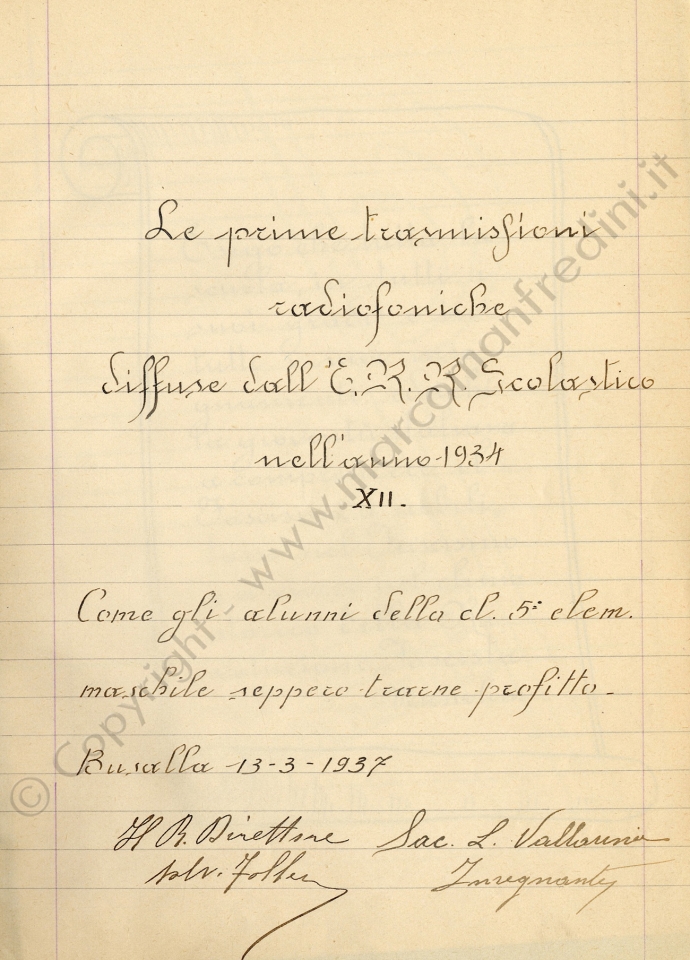 Le prime trasmissioni
radiofoniche
diffuse dall'E.R.R. Scolastico
nell'anno 1934
XII.
Come gli alunni della cl. 5ª elem.
maschile seppero trarne profitto.
Busalla 13-3-1937
Il R. Direttore Sac. L. Vallarino
Insegnante
© Copyright - www.marcomanfredini.it